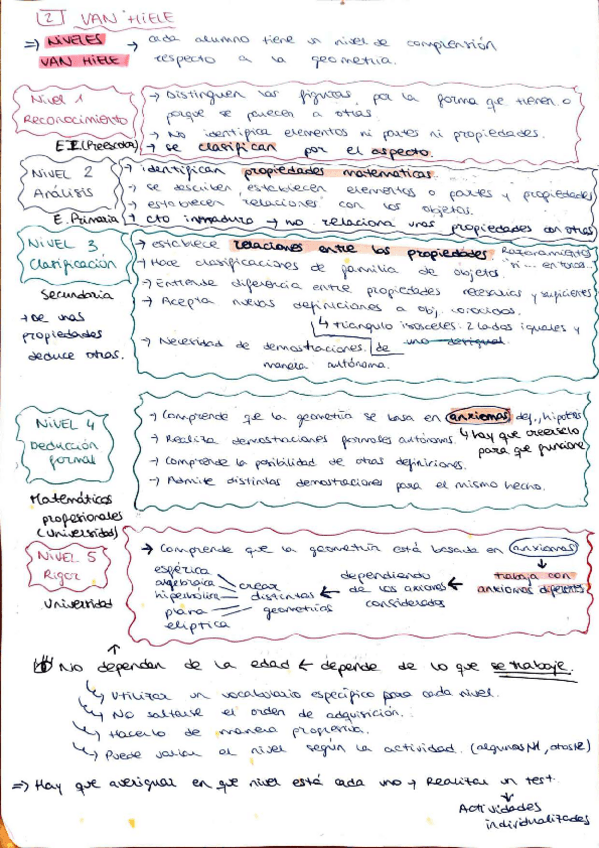 2 VAN HIELE
=> NIVELES VAN HIELE → cada alumno tiene un nivel de comprensión
respecto a la geometría.
Nivel 1
Reconocimiento
E.I (Preescolar)
→ Distinguen las figuras por la forma que tienen o
porque se parecen a otras.
→ No identifica elementos ni partes ni propiedades.
→ se clasifican por el aspecto.
NIVEL 2
Análisis
E. Primaria
→ identifican propiedades matemáticas.
→ se describen, establecen elementos o partes y propiedades
→ establecen relaciones con los objetos.
+ cto inmaduro → no relaciona unas propiedades con otras
NIVEL 3
Clasificación
Secundaria
→ De unas
propiedades
deduce otras.
→ establece relaciones entre las propiedades Razonamiento
"si... entonces..."
→ Hace clasificaciones de familia de objetos.
→ Entiende diferencia entre propiedades necesarias y suficientes
→ Acepta nuevas definiciones a obj. conocidos.
↳ triángulo isósceles: 2 lados iguales y
uno desigual
→ Necesidad de demostraciones de
manera autónoma.
NIVEL 4
Deducción
formal
Matemáticos
profesionales
(Universidad)
→ Comprende que la geometría se basa en anxiomas def., hipótesis
↳ hay que creerselo
para que funcione
→ Realiza demostraciones formales autónomas.
→ Comprende la posibilidad de otras definiciones.
→ Admite distintas demostraciones para el mismo hecho.
NIVEL 5
Rigor
Universidad
→ Comprende que la geometría está basada en anxiomas
↓
trabaja con
anxiomas diferentes
← dependiendo
de los axiomas
considerados
← crear
distintas
geometrías
esférica
algebraica
hiperbólica
plana
elíptica
↑
No dependen de la edad ← depende de lo que se trabaje.
↳ Utilizar un vocabulario específico para cada nivel.
↳ No saltarse el orden de adquisición.
↳ Hacerlo de manera progresiva.
↳ Puede variar el nivel según la actividad. (algunas N1, otras N2)
=> Hay que averiguar en que nivel está cada uno → Realizar un test.
↓
Actividades
individualizadas